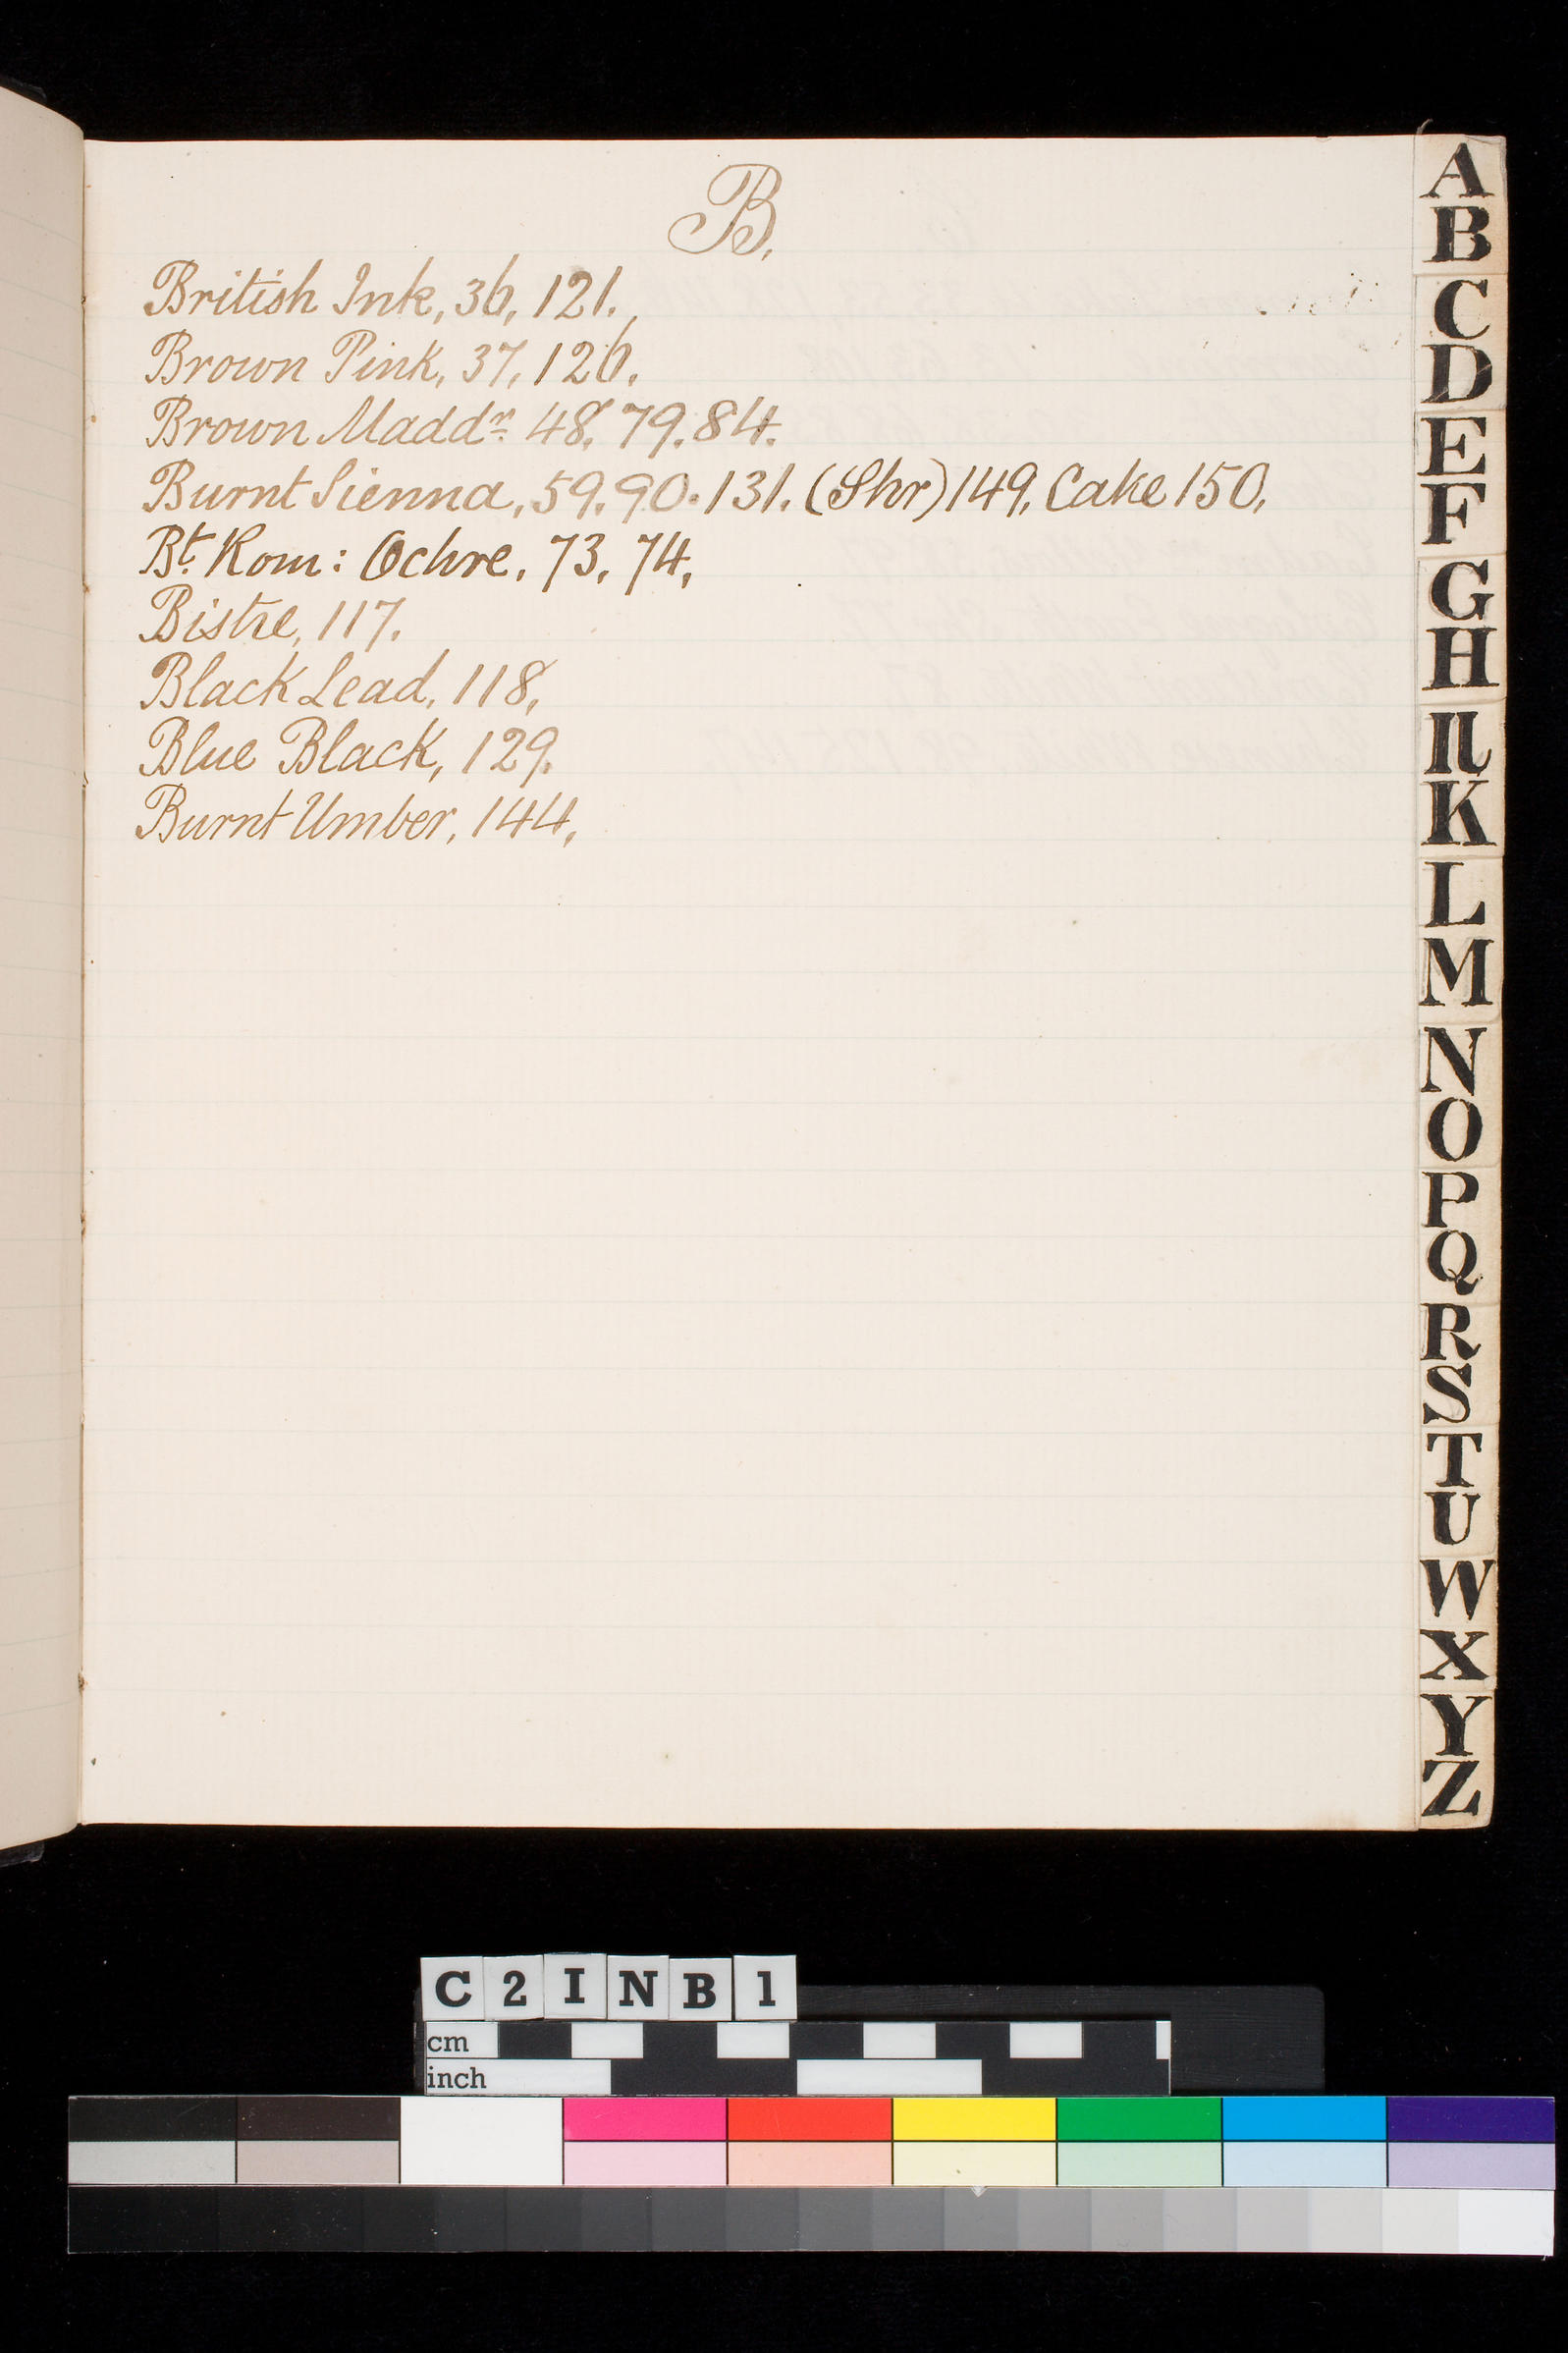 B.
British Ink, 36, 121.,
Brown Pink, 37, 126.
Brown Maddr. 48. 79. 84.
Burnt Sienna, 59. 90. 131. (Shr) 149. Cake 150.
Bt. Rom: Ochre. 73. 74.
Bistre, 117.
Black Lead. 118.
Blue Black, 129.
Burnt Umber. 144.
A
B
C
D
E
F
G
H
IJ
K
L
M
N
O
P
Q
R
S
T
U
W
X
Y
Z
C2INB1
cm
inch